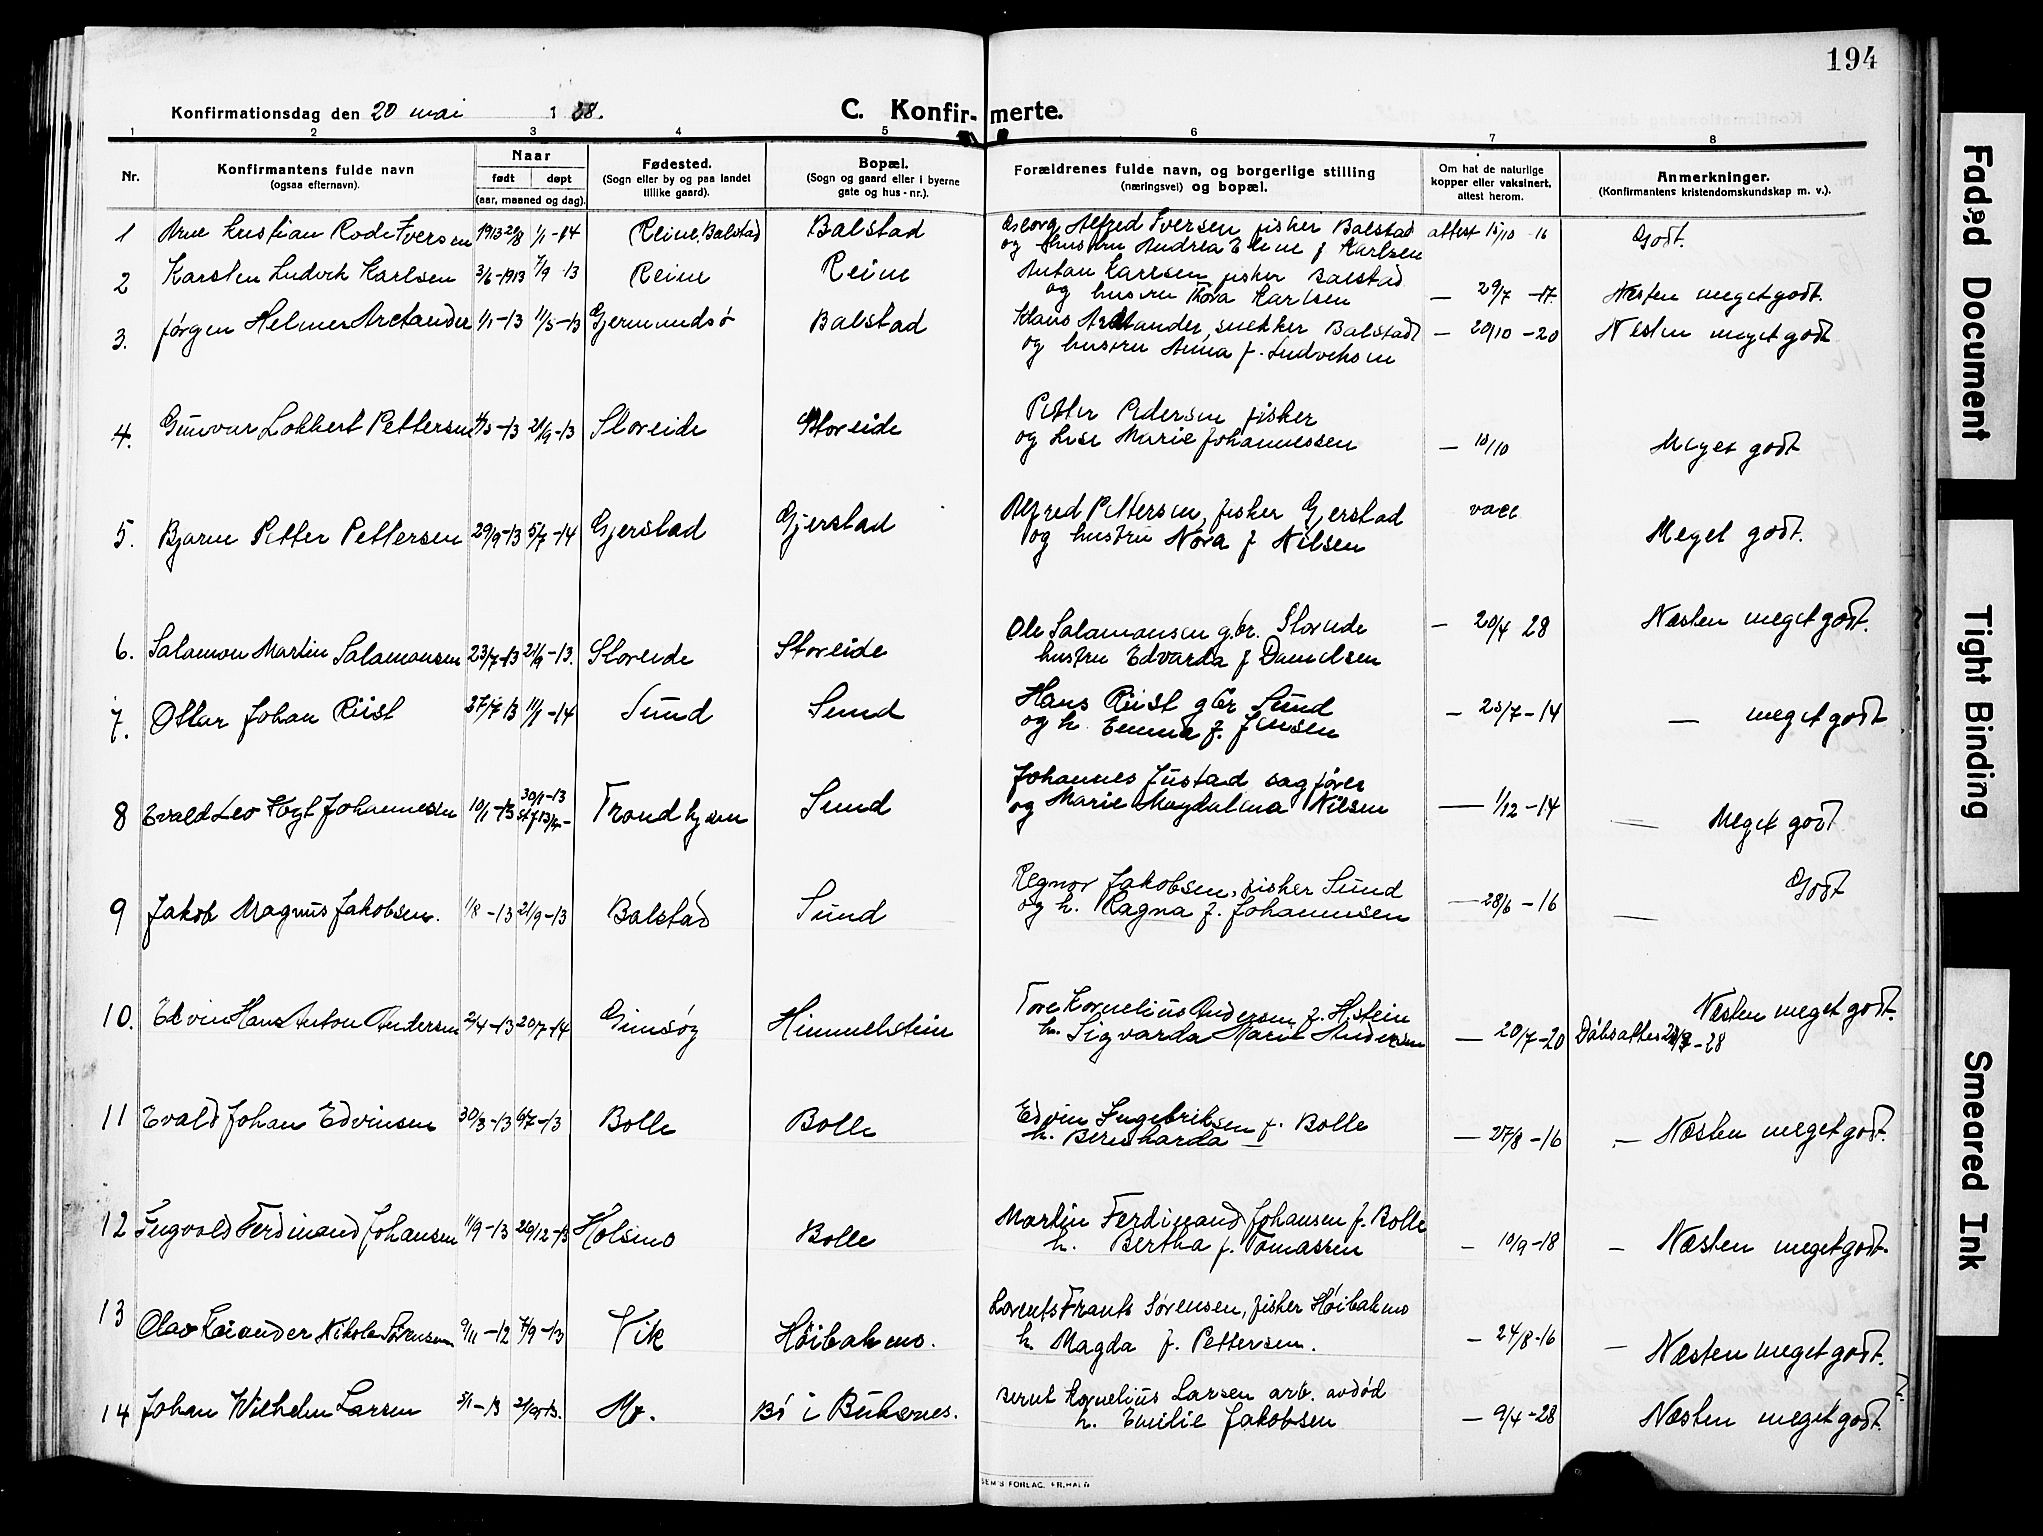 194
Konfirmationsdag den 20 mai 1 28.
C. Konfirmerte.
1 2 3 4 5 6 7 8
Nr.
Konfirmantens fulde navn
(ogsaa efternavn).
Naar
født døpt
(aar, maaned og dag).
Fødested.
(Sogn eller by og paa landet
tillike gaard).
Bopæl.
(Sogn og gaard eller i byerne
gate og hus-nr.).
Forældrenes fulde navn, og borgerlige stilling
(næringsvei) og bopæl.
Om hat de naturlige
kopper eller vaksinert,
attest herom.
Anmerkninger.
(Konfirmantens kristendomskundskap m. v.).
1 Arne Kristian Rode Iversen 1913 2/8 1/1-14 Reine, Balstad Balstad Alfred Iversen fisker Balstad attest 15/10-16 Godt.
og hustru Andrea Eline f Karlsen
2 Karsten Ludvik Karlsen 3/6-1913 7/9-13 Reine Reine Anton Karlsen fisker Balstad
og hustru Thora Karlsen — 29/7-17 Næsten meget godt.
3. Jørgen Helmer Arctander 1/1-13 11/5-13 Gjermundsø Balstad Klaus Arctander, snekker Balstad — 20/10-20 Næsten meget godt
og hustru Anna f. Ludviksen
4. Gunvor Lokkert Pettersen 4/5-13 21/9-13 Storeide Storeide Petter Pedersen fisker
og hust Marie Johannessen — 10/10 Meget godt
5. Bjarne Petter Pettersen 29/9-13 5/7-14 Gjerstad Gjerstad Alfred Pettersen, fisker Gjerstad vacc Meget godt.
og hustru Nora f Nilsen
6. Salamon Martin Salamonsen 23/7-13 21/9-13. Storeide Storeide Ole Salamonsen gbr. Storeide — 20/4 28 Næsten meget godt.
hustru Edvarda f Danielsen
7. Ottar Johan Riist 27/7 13 11/1-14 Sund Sund Hans Riist gbr Sund — 25/7-14 — meget godt
og h. Emma f. Jensen
8 Evald Leo Vogt Johannessen 10/1-13 30/1-13 Trondhjem Sund Johannes Justad sagfører
og Marie Magdalena Nilsen — 1/12-14 — Meget godt
9 Jakob Magnus Jakobsen. 1/8-13 21/9-13 Balstad Sund Regnor Jakobsen, fisker Sund — 28/6-16 — Godt
og h. Ragna f. Johannesen
10. Edvin Hans Anton Andersen 2/4-13 20/7-14 Gimsøy Himmelstein Tore Kornelius Andersen f. H.stein Næsten meget godt.
h. Sigvarda Marie Andersen — 20/7-20 Dåbsattest -28
11 Evald Johan Edvinsen 30/3-13 6/7-13 Bolle Bolle Edvin Ingebriktsen f. Bolle
h. Bernharda — — 27/8-16 — Næsten meget godt.
12 Ingvald Ferdinand Johansen 11/9-13 26/12-13 Holsmo Bolle Martin Ferdinand Johansen f. Bolle
h. Bertha f. Tomassen — 10/9-18 — Næsten meget godt.
13 Olav Leander Nikolai Sørensen 9/11-12 7/9-13 Vik Høibakmo. Lorents Frants Sørensen, fisker Høibakmo
h. Magda f. Pettersen. — 24/8-16 — Næsten meget godt.
14 Johan Wilhelm Larsen 5/1-13 21/9-13. My. Bø i Buksnes. Bernt Kornelius Larsen arb. avdød
h. Emilie Jakobsen — 9/4-28 Næsten meget godt.
SEM'S FORLAG, FR.HALD
Faded Document
Tight Binding
Smeared Ink